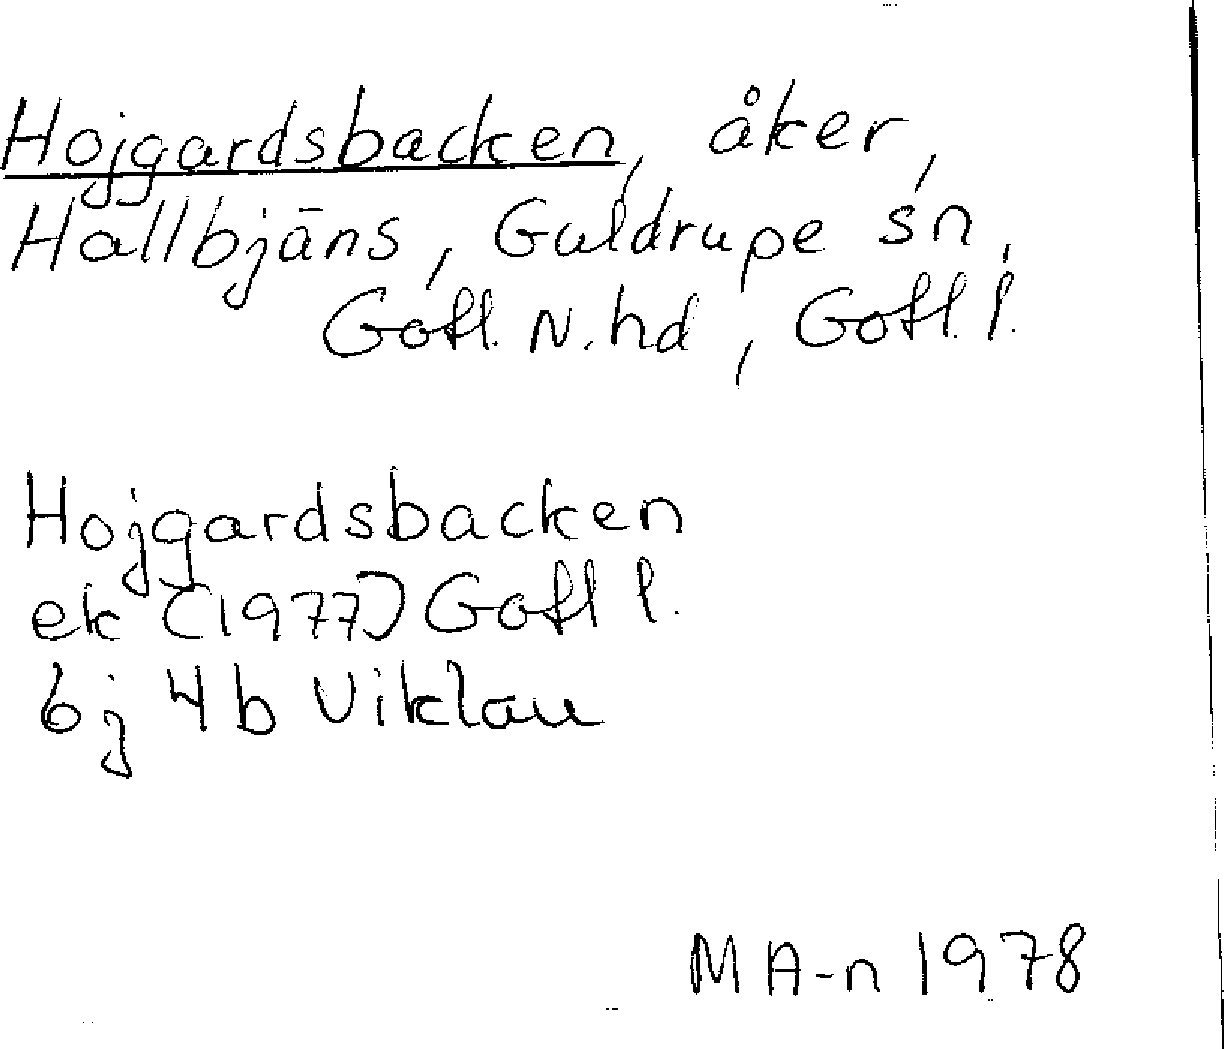 Hojgardsbacken, åker,
Hallbjäns, Guldrupe sn,
Gotl. N. hd, Gotl. l.
Hojgardsbacken
ek (1977) Gotl l.
6j 4b Viklau
MA-n 1978